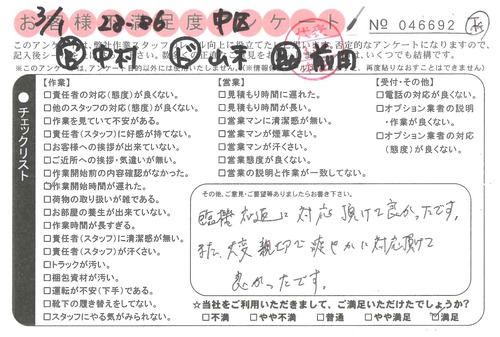 お客様満足度アンケート
3/1 22-06 中区
No 046692
このアンケートは、弊社作業スタッフのレベル向上に役立てたいと思います。否定的なアンケートになりますので、
※このアンケートは、アンケート目的以外には使用いたしません。
中村 ド 山本 前田
チェックリスト
【作業】
□責任者の対応(態度)が良くない。
□他のスタッフの対応(態度)が良くない。
□作業を見ていて不安がある。
□責任者(スタッフ)に好感が持てない。
□お客様への挨拶が出来ていない。
□ご近所への挨拶・気遣いが無い。
□作業開始前の内容確認がなかった。
□作業開始時間が遅れた。
□荷物の取り扱いが雑である。
□お部屋の養生が出来ていない。
□作業時間が長すぎる。
□責任者(スタッフ)に清潔感が無い。
□責任者(スタッフ)が汗くさい。
□トラックが汚い。
□梱包資材が汚い。
□運転が不安(下手)である。
□靴下の履き替えをしてない。
□スタッフにやる気がみられない。
【営業】
□見積もり時間に遅れた。
□見積もり時間が長い。
□営業マンに清潔感が無い。
□営業マンが煙草くさい。
□営業マンが汗くさい。
□営業態度が良くない。
□営業の説明と作業が一致してない。
【受付・その他】
□電話の対応が良くない。
□オプション業者の説明
・作業が良くない。
□オプション業者の対応
(態度)が良くない。
その他、ご意見・ご要望等ありましたらお書き下さい。
臨機応変に対応頂けて良かったです。
また、大変親切で爽やかに対応頂けて
良かったです。
☆当社をご利用いただきまして、ご満足いただけたでしょうか?
□不満 □やや不満 □普通 □やや満足 □満足